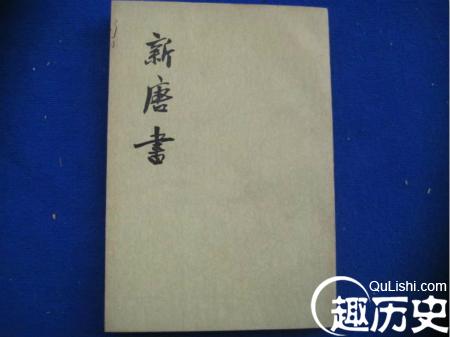 新唐書
QuLishi.com
趣历史